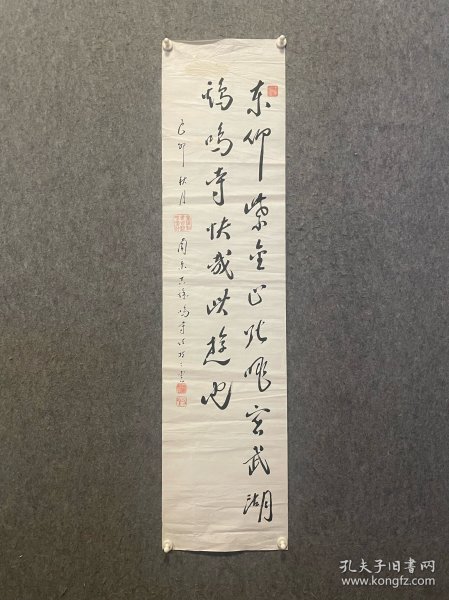 东仰紫金山北眺玄武湖
鸡鸣寺快哉此游也
己卯秋月
鸣寺
孔夫子旧书网
www.kongfz.com